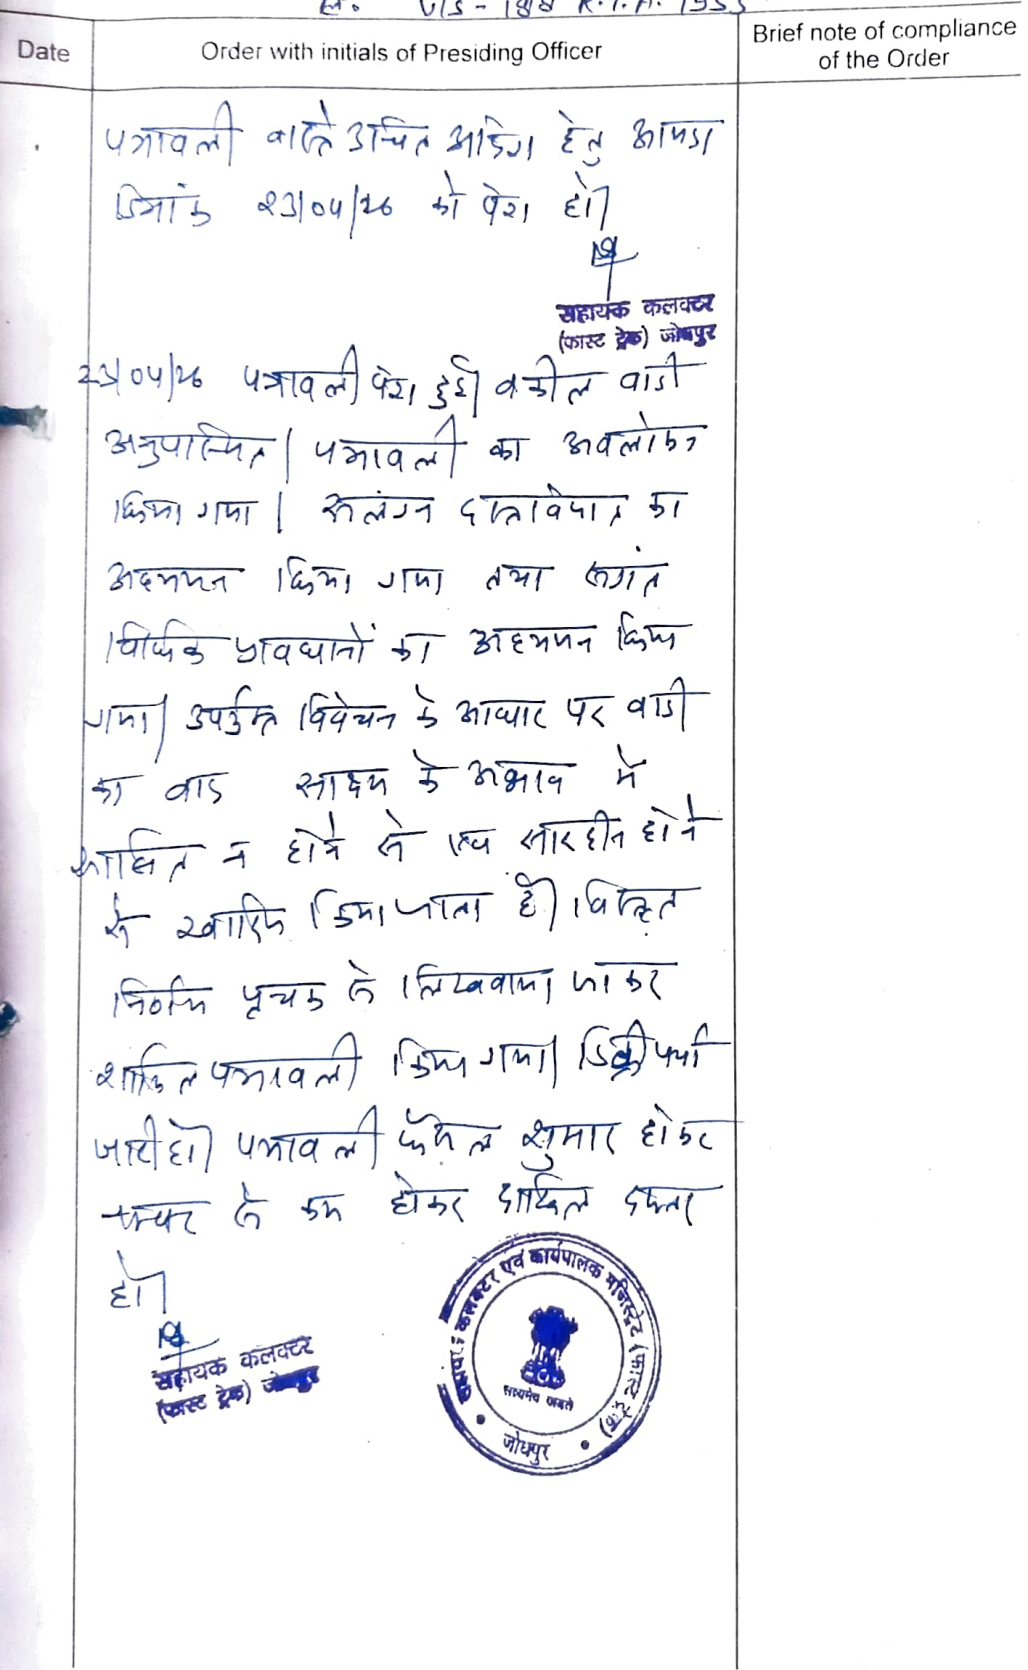 U/S - 188 R.T.A. 1955
Date
Order with initials of Presiding Officer
Brief note of compliance
of the Order
पत्रावली वास्ते उचित आदेश हेतु आयंदा
दिनांक 23/04/26 को पेश हो।
सहायक कलक्टर
(फास्ट ट्रेक) जोधपुर
23/04/26 पत्रावली पेश हुई। वकील वादी
अनुपस्थित। पत्रावली का अवलोकन
किया गया। संलग्न दस्तावेजात का
अध्ययन किया गया तथा संगत
विधिक प्रावधानों का अध्ययन किया
गया। उपर्युक्त विवेचन के आधार पर वादी
का वाद साक्ष्य के अभाव में
साबित न होने से एवं सारहीन होने
से खारिज किया जाता है। विस्तृत
निर्णय पृथक से लिखवाया जाकर
शामिल पत्रावली किया गया। डिक्री पर्चा
जारी हो। पत्रावली फैसल शुमार होकर
नम्बर से कम होकर दाखिल दफ्तर
हो।
सहायक कलक्टर
(फास्ट ट्रेक) जोधपुर
सहायक कलक्टर एवं कार्यपालक मजिस्ट्रेट (फास्ट ट्रेक)
सत्यमेव जयते
जोधपुर